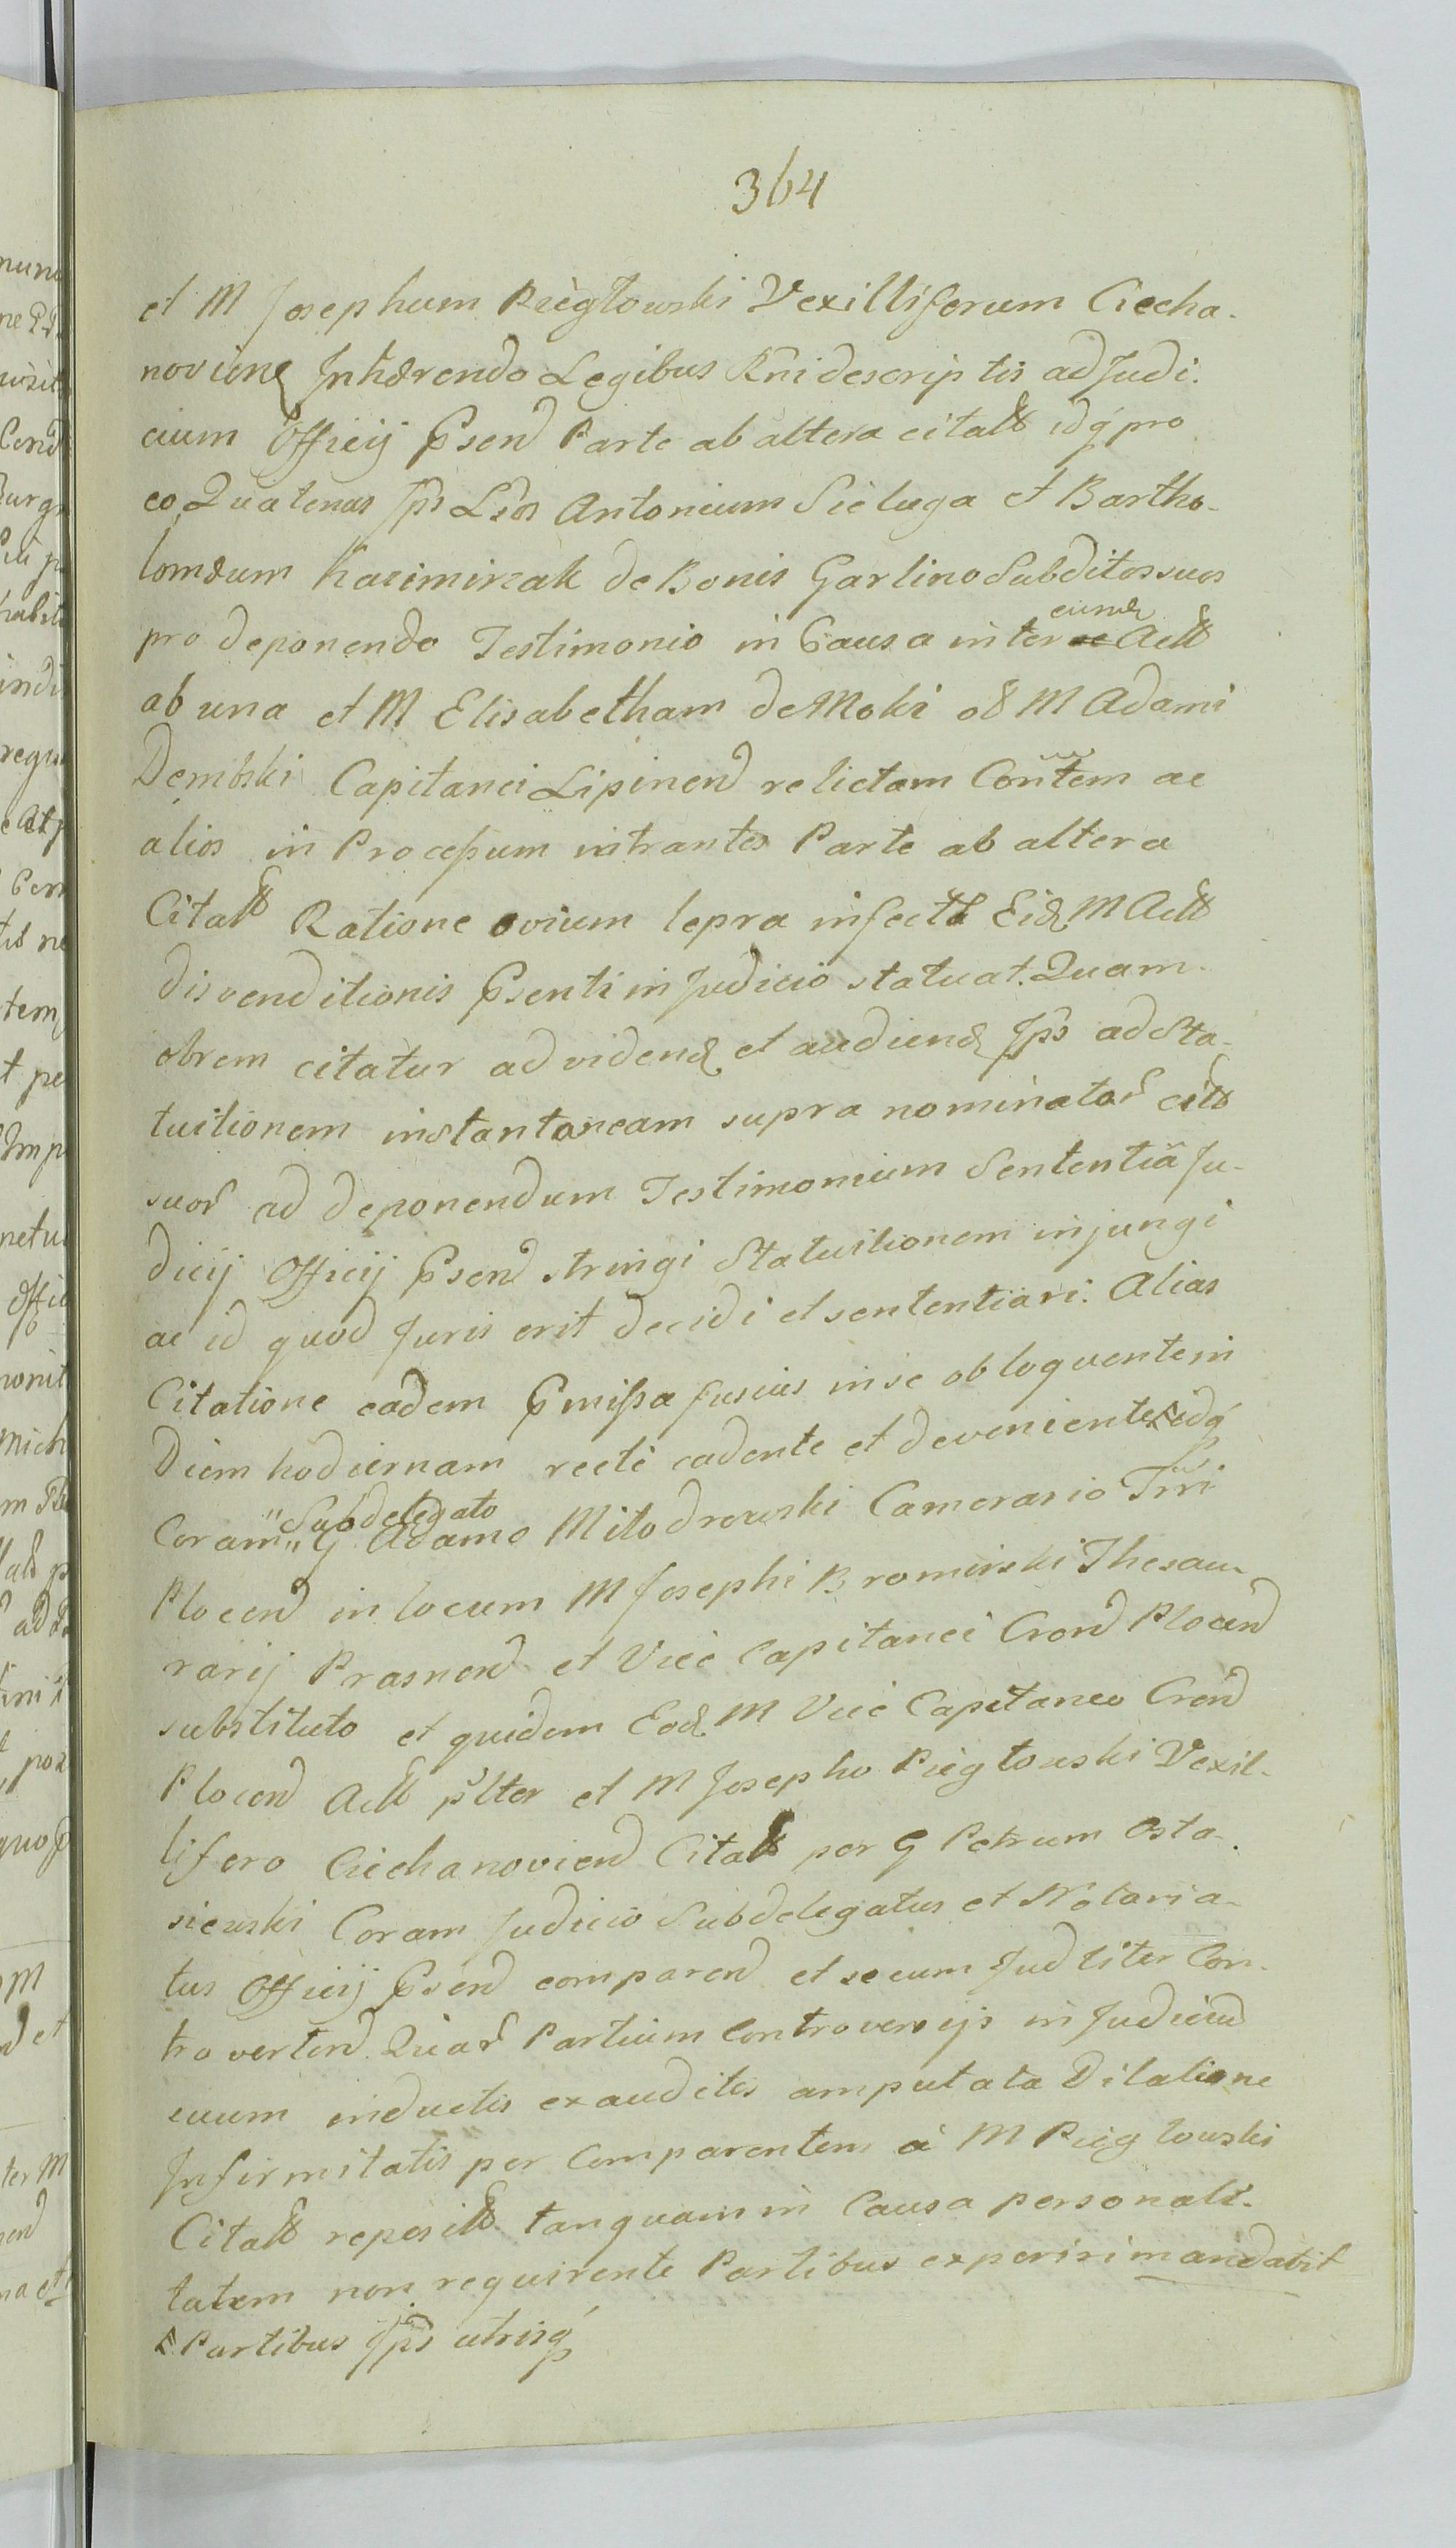 364
et M Josephum Pięgłowski Vexilliferum Ciecha-
novien Inhærendo Legibus Rni descriptis ad Judi-
cium Officij Psen Parte ab altera citatt idq pro
eo Quatenus Ips Lbos Antonium Sieluga et Bartho-
lomæum Kazimirzak de Bonis Garlino Subditos suos
pro deponendo Testimonio in Causa inter eund Actt
ab una et M Elisabetham de Moki oł M Adami
Dembski Capitanei Lipinen relictam Contem ac
alios in Processum intrantes Parte ab altera
Citatt Ratione ovium lepra infectt Eid M Actt
disvenditionis Psenti in Judicio statuat. Quam-
obrem citatur ad videnđ et audienđ Ips ad Sta-
tuitionem instantaneam supra nominator citt
suor ad deponendum Testimonium Sententiâ Ju-
dicij Officij Psen stringi Statuitionem injungi
ac id quod Juris erit decidi et sententiari. Alias
Citatione eadem Pmissa fusius in se obloquentem
Diem hodiernam recte cadente et deveniente idq
Subdelegato
Coram G Adamo Miłodrowski Camerario Trri
Plocen in locum M Josephi Bromirski Thesau-
rarij Prasnen et Vice Capitanei Cron Plocen
substituto et quidem Eod M Vice Capitaneo Cren
Plocen Actt pslter et M Josepho Pięgłowski Vexil-
lifero Ciechanovien Citatt per G Petrum Osta-
siewski Coram Judicio Subdelegatus et Notaria-
tus Officij Psen comparen et secum Judliter Con-
troverten Quar Partium Controversijs in Judicium
cuum inductis exauditis amputata Dilatione
Infirmitatis per Comparentem à M Pięgłowski
Citatt repositt tanquam in Causa personali-
tatem non requirente Partibus experiri mandavit
Partibus Ips utrisq